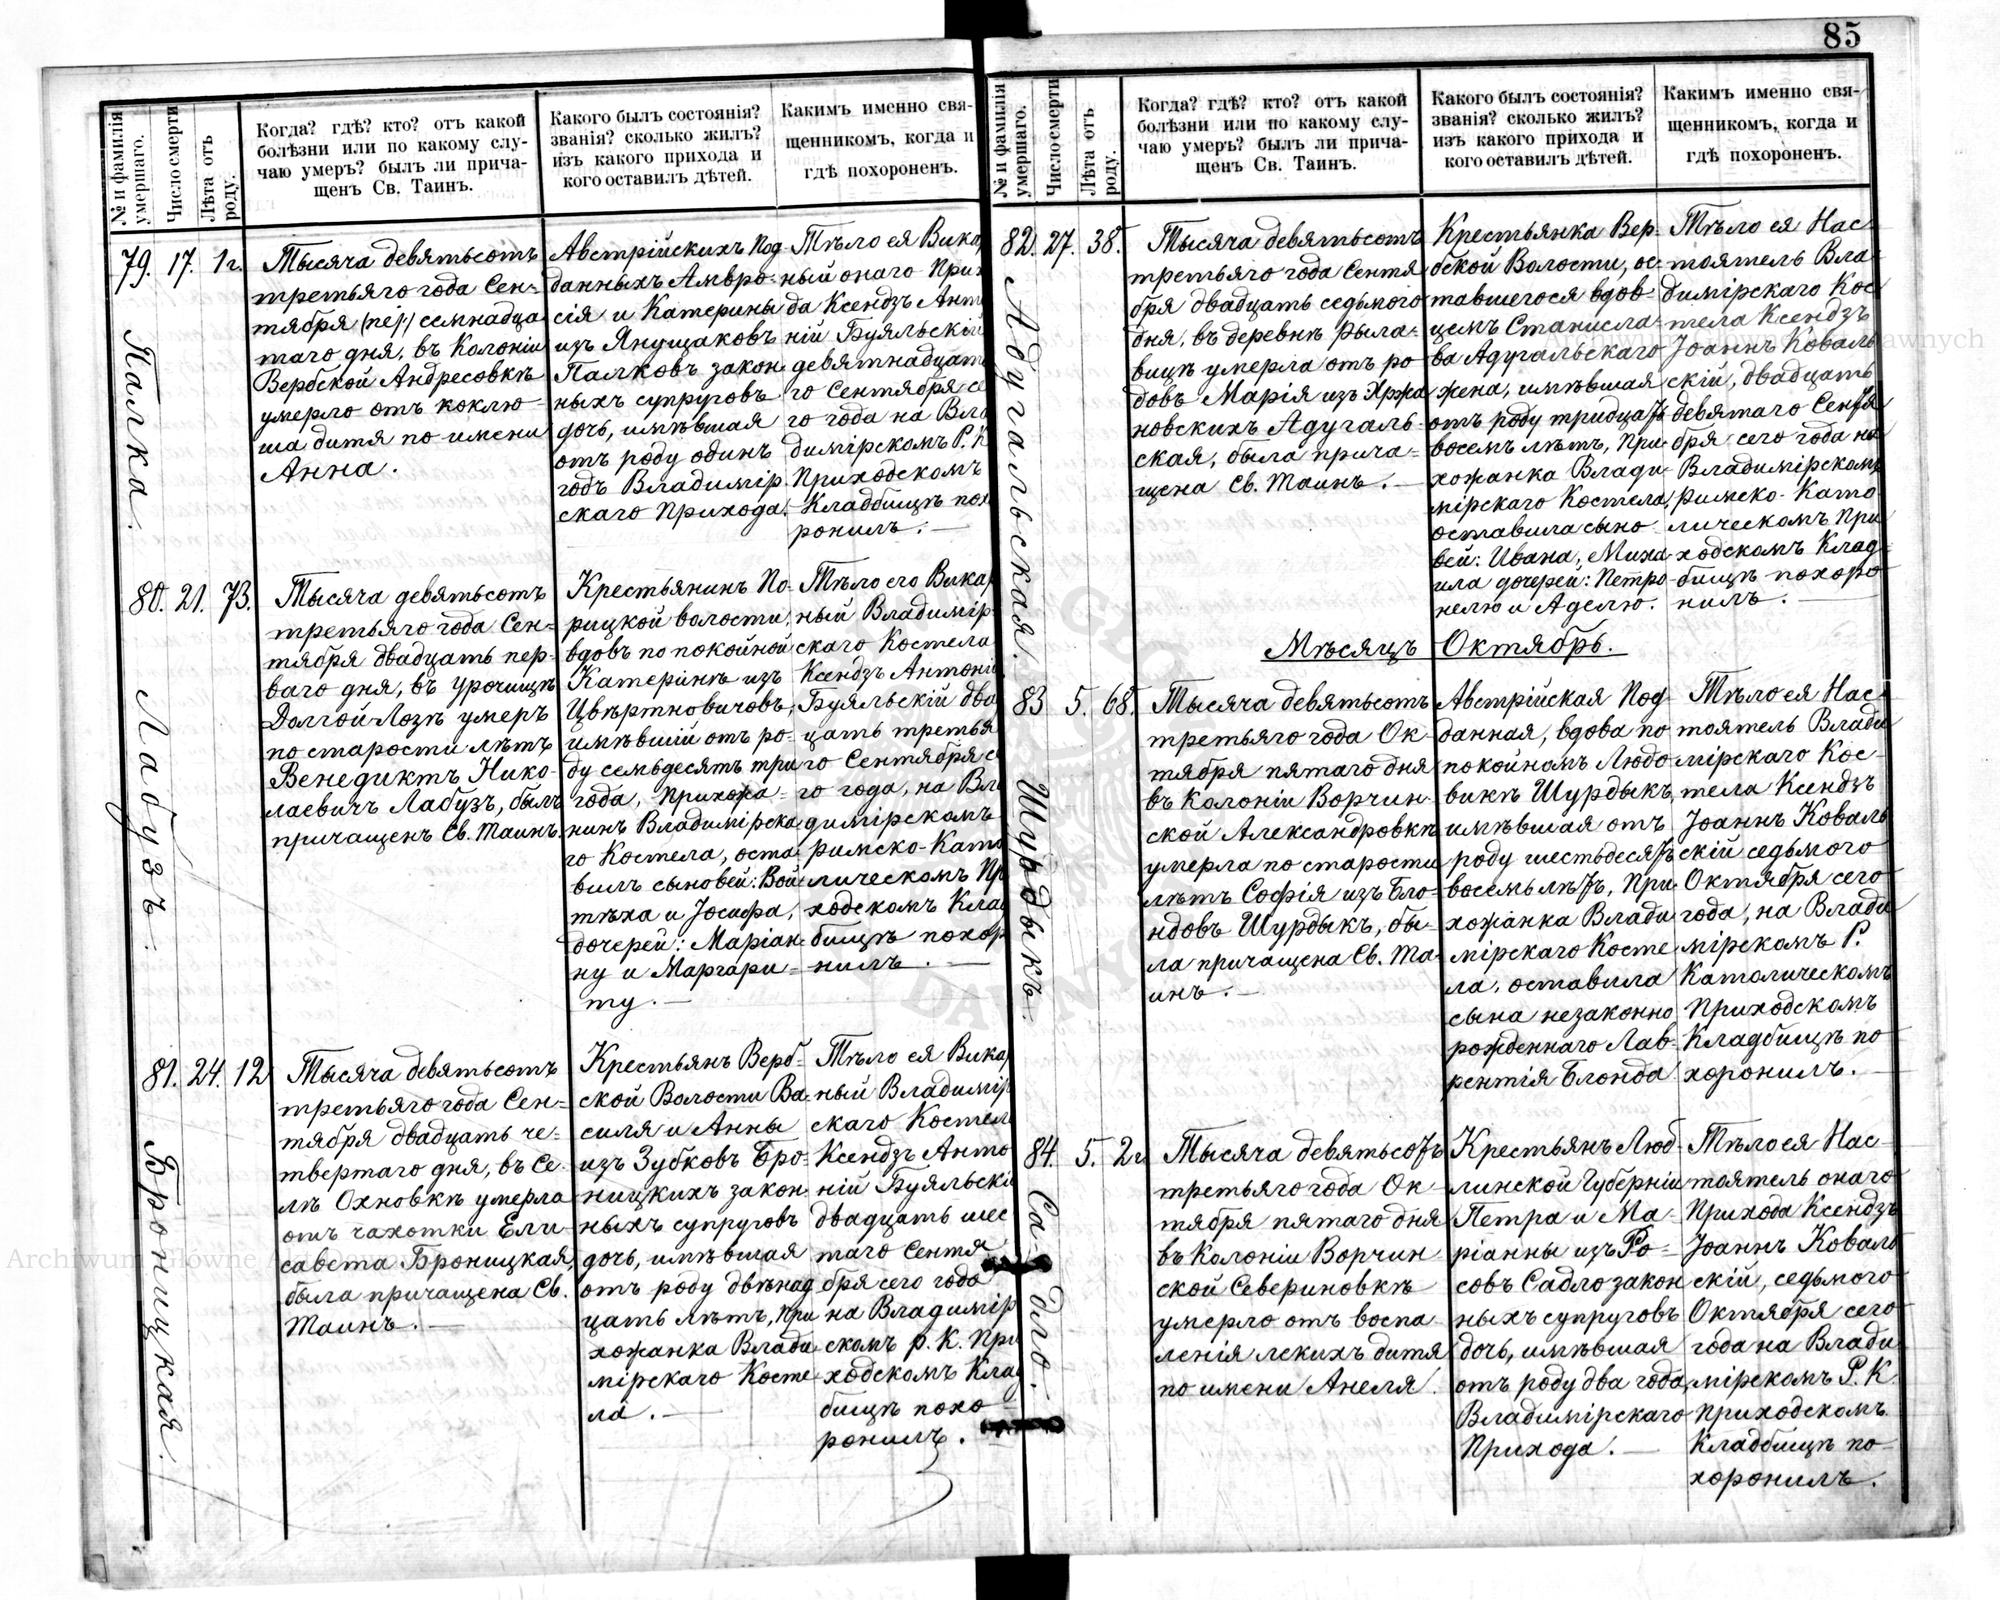 85
№ и фамилія умершаго.
Число смерти
Лѣта отъ роду.
Когда? гдѣ? кто? отъ какой
болѣзни или по какому слу-
чаю умеръ? былъ ли прича-
щенъ Св. Таинъ.
Какого былъ состоянія?
званія? сколько жилъ?
изъ какого прихода и
кого оставилъ дѣтей.
Какимъ именно свя-
щенникомъ, когда и
гдѣ похороненъ.
79. Палка.
17.
1г.
Тысяча девятьсотъ
третьяго года Сен-
тября семнадца
таго дня, въ Колоніи
Вербской Андресовкѣ
умерло отъ коклю-
ша дитя по имени
Анна.
Австрійскихъ Под-
данныхъ Амвро-
сія и Катерины
изъ Янущаковъ
Палковъ закон
ныхъ супруговъ
дочь, имѣвшая
отъ роду одинъ
годъ Владимір
скаго Прихода.
Тѣло ея Вика
ный онаго При
да Ксендзъ Ант
ній Буяльскій
девятнадцат
го Сентября се
го года на Вла
димірскомъ Р. К
Приходскомъ
Кладбищѣ пох
ронилъ.
80. Лабузъ.
21.
73.
Тысяча девятьсотъ
третьяго года Сен-
тября двадцать пер-
ваго дня, въ урочищѣ
Долгой-Лозѣ умеръ
по старости лѣтъ
Венедиктъ Нико-
лаевичъ Лабузъ, былъ
причащенъ Св. Таинъ
Крестьянинъ По-
рицкой волости,
вдовъ по покойной
Катеринѣ изъ
Цвѣртновичовъ,
имѣвшій отъ ро-
ду семьдесятъ три
года, Прихожа-
нинъ Владимірска
го Костела, оста
вилъ сыновей: Вой
тѣха и Іосифа,
дочерей: Маріан
ну и Маргари-
ту.
Тѣло его Вика
ный Владимір
скаго Костела
Ксендзъ Антоні
Буяльскій два
цать третья
го Сентября се
го года, на Вла
димірскомъ
римско-Като
лическомъ Пр
ходскомъ Клад
бищѣ похор
нилъ.
81. Броницкая.
24.
12
Тысяча девятьсотъ
третьяго года Сен-
тября двадцать че-
твертаго дня, въ Се-
лѣ Охновкѣ умерла
отъ чахотки Ели-
савета Броницкая,
была причащена Св.
Таинъ.
Крестьянъ Верб-
ской Волости Ва
силя и Анны
изъ Зубковъ Бро-
ницкихъ закон
ныхъ супруговъ
дочь, имѣвшая
отъ роду двѣнад
цать лѣтъ, При
хожанка Влади
мірскаго Косте
ла.
Тѣло ея Вика
ный Владимір
скаго Костела
Ксендзъ Анто
ній Буяльскі
двадцать шес
таго Сентя
бря сего года
на Владимір
скомъ р. К. При
ходскомъ Клад
бищѣ похо
ронилъ.
№ и фамилія умершаго.
Число смерти
Лѣта отъ роду.
Когда? гдѣ? кто? отъ какой
болѣзни или по какому слу-
чаю умеръ? былъ ли прича-
щенъ Св. Таинъ.
Какого былъ состоянія?
званія? сколько жилъ?
изъ какого прихода и
кого оставилъ дѣтей.
Какимъ именно свя-
щенникомъ, когда и
гдѣ похороненъ.
82. Адугальская.
27.
38.
Тысяча девятьсотъ
третьяго года Сентя
бря двадцать седьмого
дня, въ деревнѣ Рыла-
вицѣ умерла отъ ро
довъ Марія изъ Хржа
новскихъ Адугаль-
ская, была прича-
щена Св. Таинъ.
Крестьянка Вер-
бской Волости, ос-
тавшегося вдов-
цемъ Станисла-
ва Адугальскаго
жена, имѣвшая
отъ роду тридцать
восемъ лѣтъ, При
хожанка Влади
мірскаго Костела,
оставила сыно
вей: Ивана, Миха
ила дочерей: Петро
нелю и Аделю.
Тѣло ея Нас
тоятель Вла-
димірскаго Кос
тела Ксендзъ
Іоаннъ Коваль
скій, двадцать
девятаго Сентя
бря сего года на
Владимірскомъ
римско-Като
лическомъ При
ходскомъ Клад-
бищѣ похоро
нилъ.
Мѣсяцъ Октябрь.
83 Шурдыкъ.
5.
68.
Тысяча девятьсотъ
третьяго года Ок-
тября пятаго дня
въ Колоніи Ворчин-
ской Александровкѣ
умерла по старости
лѣтъ Софія изъ Бло-
ндовъ Шурдыкъ, бы-
ла причащена Св. Та-
инъ.
Австрійская Под
данная, вдова по
покойномъ Людо
викѣ Шурдыкъ,
имѣвшая отъ
роду шестьдесять
восемь лѣтъ, При
хожанка Влади
мірскаго Косте
ла, оставила
сына незаконно
рожденнаго Лав-
рентія Блонда
Тѣло ея Нас
тоятель Влади
мірскаго Кос-
тела Ксендзъ
Іоаннъ Коваль
скій седьмого
Октября сего
года, на Влади
мірскомъ Р.
Католическомъ
Приходскомъ
Кладбищѣ по
хоронилъ.
84. Садло.
5.
2г
Тысяча девятьсотъ
третьяго года Ок-
тября пятаго дня
въ Колоніи Ворчин
ской Севериновкѣ
умерло отъ воспа
ленія лекихъ дитя
по имени Анеля.
Крестьянъ Люб-
линской Губерніи
Петра и Ма-
ріанны изъ Ро-
совъ Садло закон
ныхъ супруговъ
дочь, имѣвшая
отъ роду два года,
Владимірскаго
Прихода.
Тѣло ея Нас-
тоятель онаго
Прихода Ксендзъ
Іоаннъ Коваль
скій, седьмого
Октября сего
года на Влади
мірскомъ Р. К.
Приходскомъ
Кладбищѣ по-
хоронилъ.
Archiwum Główne Akt Dawnych